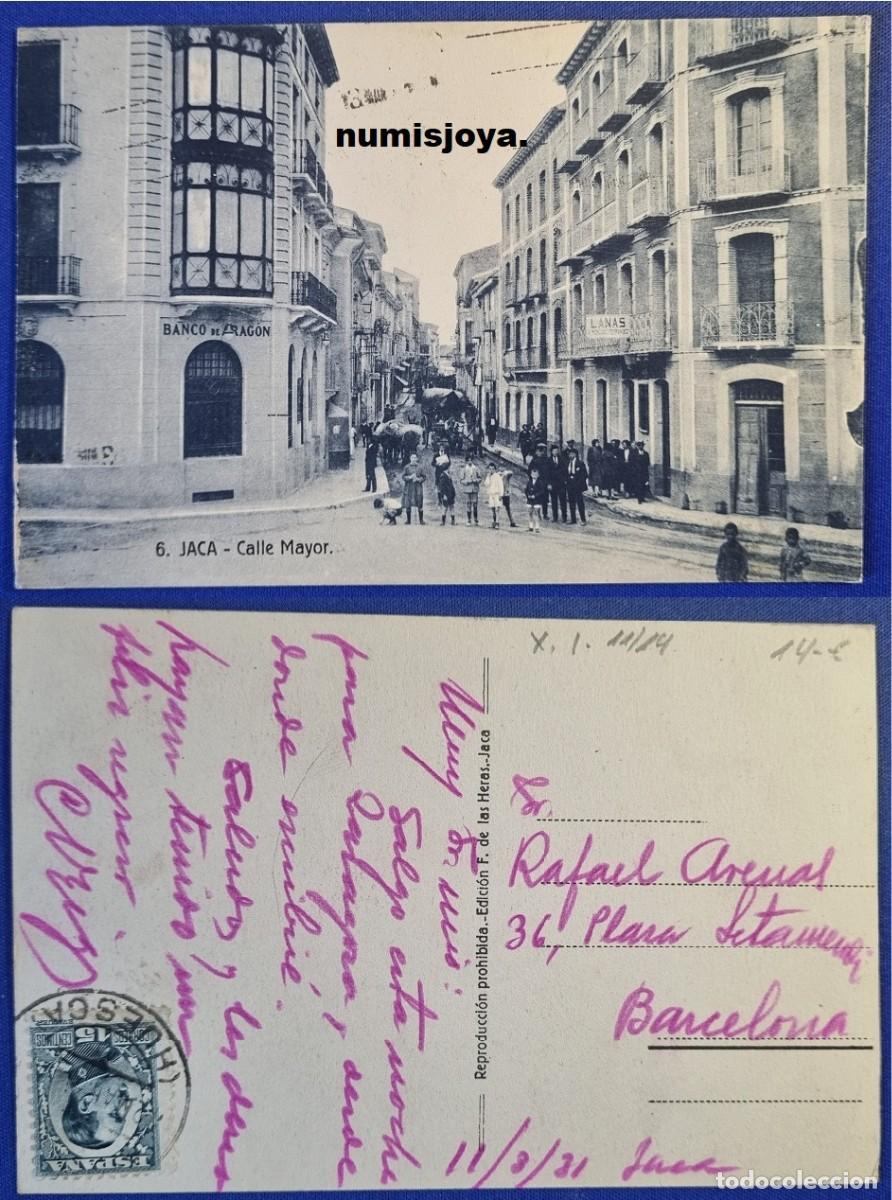 numisjoya.
BANCO DE ARAGÓN
LANAS
6. JACA - Calle Mayor.
X. I. 11/14
14-€
Muy Sr. mío:
Salgo esta noche
para Zaragoza, desde
donde escribiré.
Saludos y les deseo
hayan tenido un
feliz regreso.
Reproducción prohibida.-Edición F. de las Heras.-Jaca
Sr.
Rafael Arenas
36, Plaza Letamendi
Barcelona
11/3/31 Jaca
(HUESCA)
CORREOS
15
CENTIMOS
ESPAÑA
todocoleccion